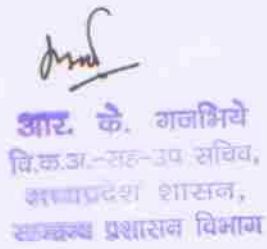 आर. के. गजभिये
वि.क.अ.-सह-उप सचिव,
मध्यप्रदेश शासन,
सामान्य प्रशासन विभाग